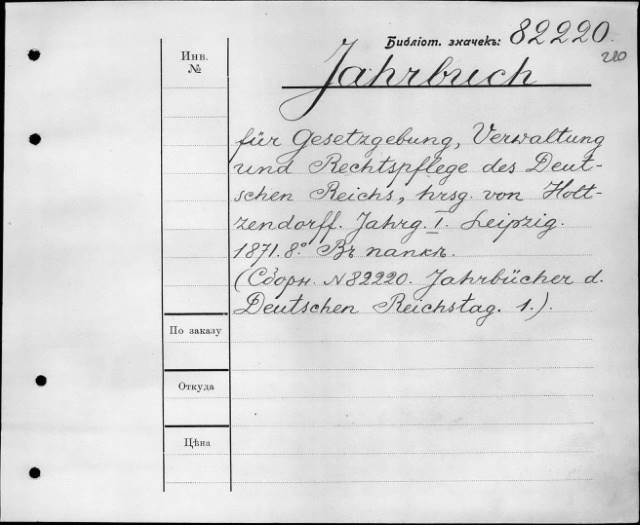 Библіот. значекъ: 82220.
220
Инв.
№
Jahrbuch
für Gesetzgebung, Verwaltung
und Rechtspflege des Deut-
schen Reichs, hrsg. von Holt-
zendorff. Jahrg. I. Leipzig.
1871. 8.° Въ папкѣ.
(Сборн. N 82220. Jahrbücher d.
Deutschen Reichstag. 1.).
По заказу
Откуда
Цѣна